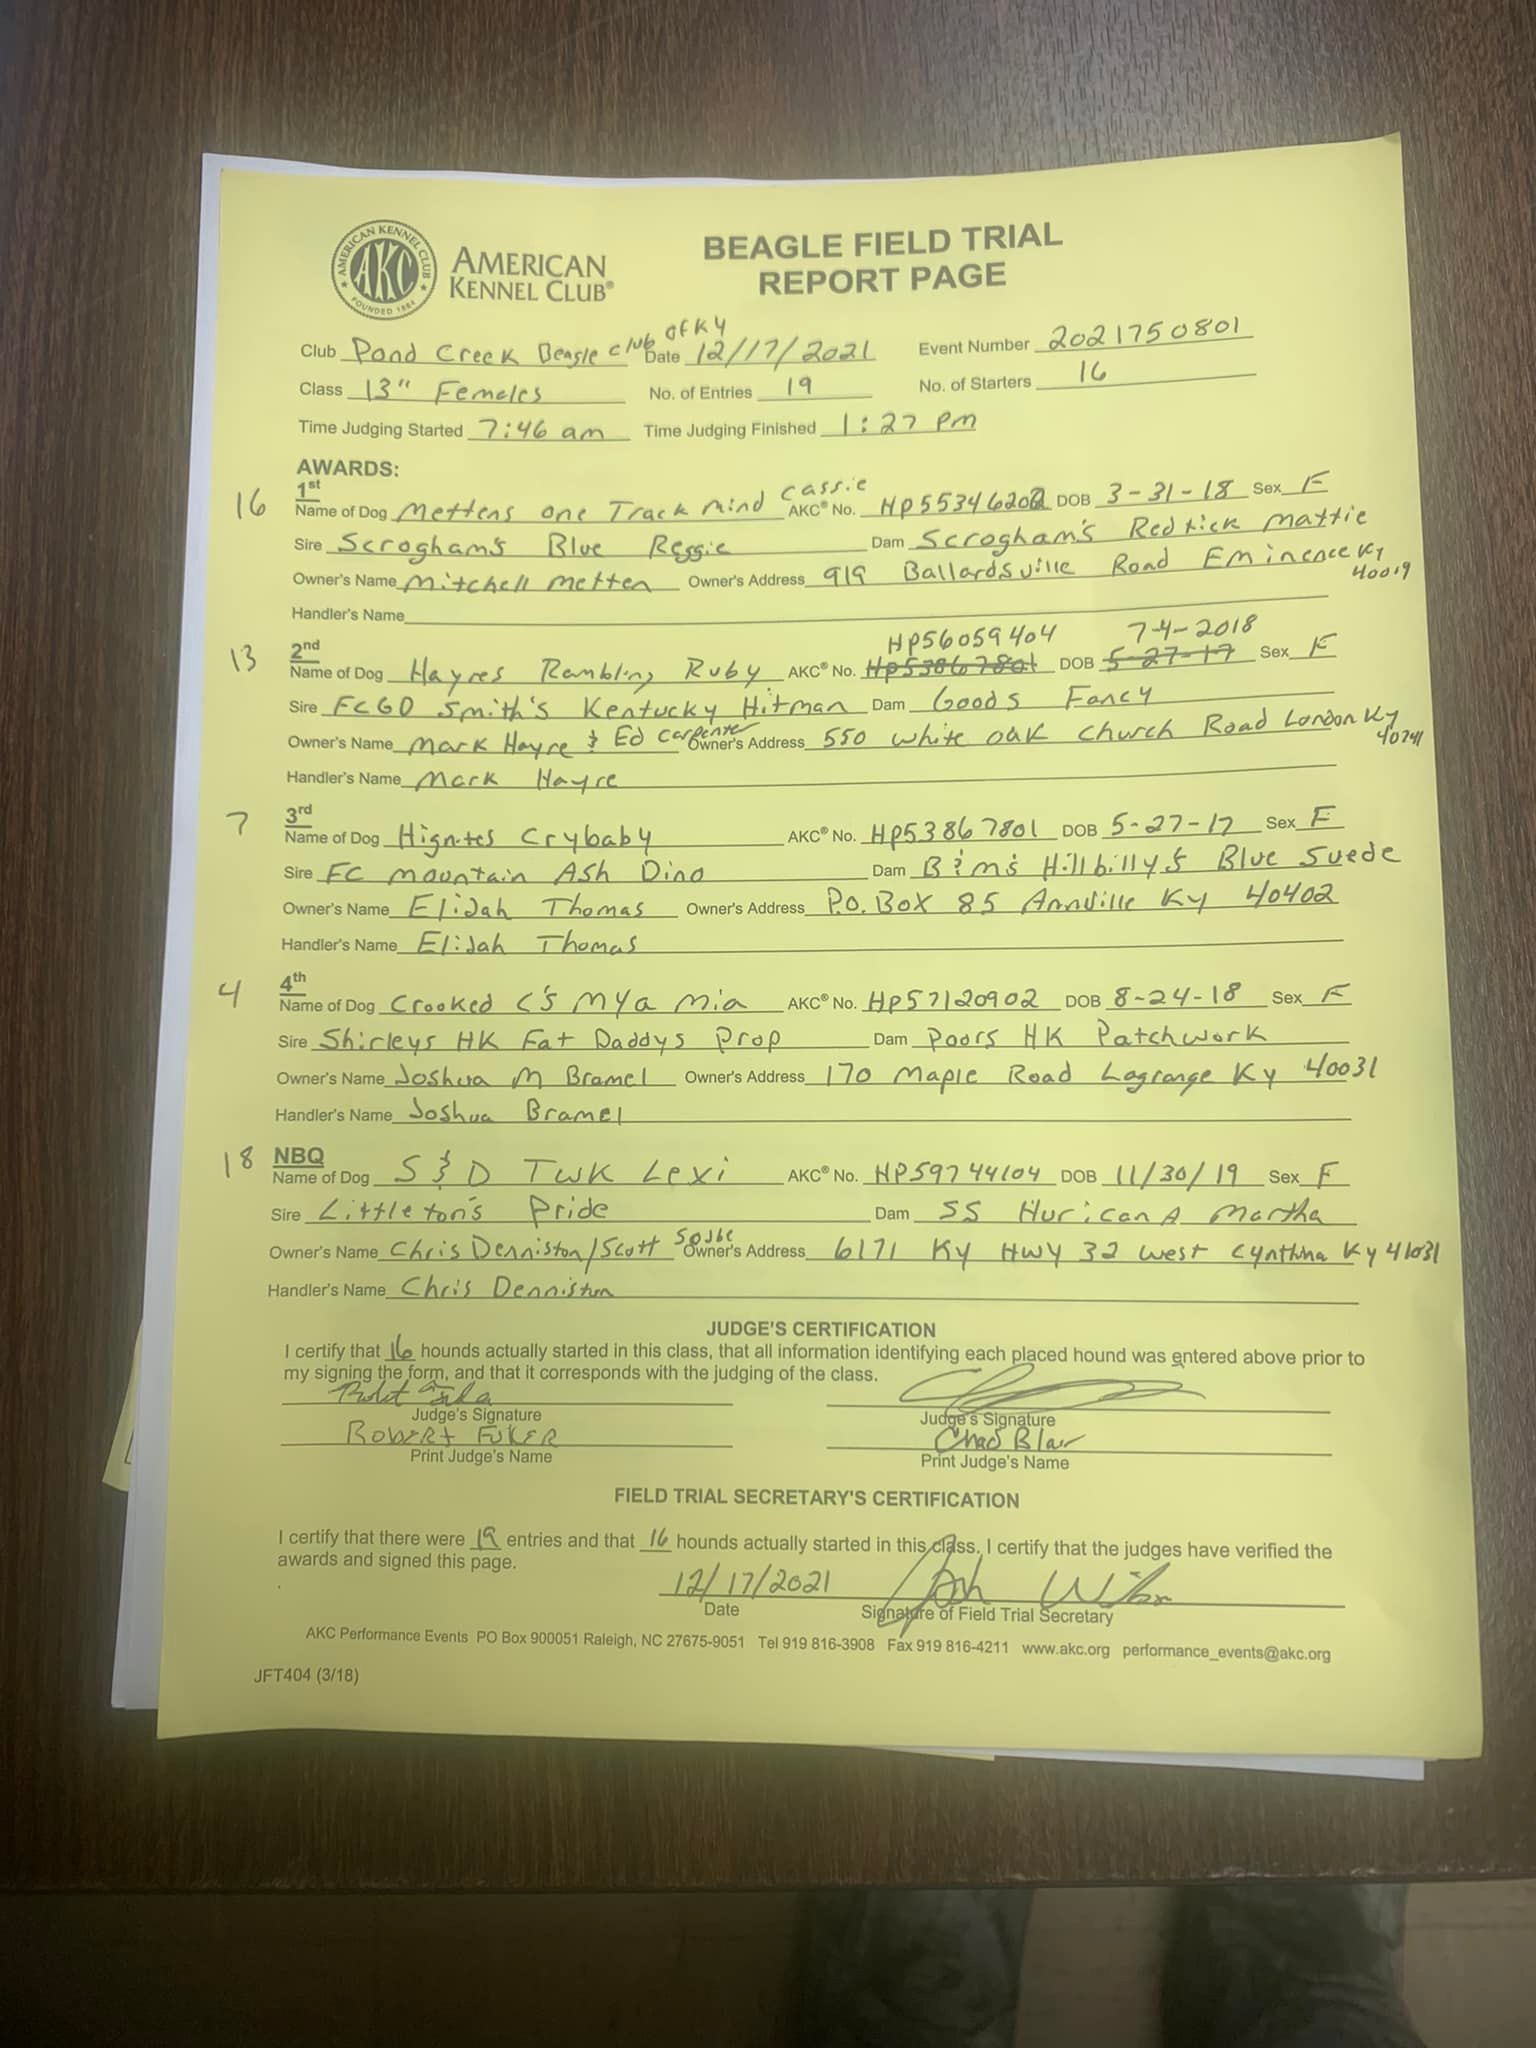 AMERICAN KENNEL CLUB
AKC
FOUNDED 1884
AMERICAN
KENNEL CLUB®
BEAGLE FIELD TRIAL
REPORT PAGE
Club Pond Creek Beagle Club of KY Date 12/17/2021 Event Number 2021750801
Class 13" Females No. of Entries 19 No. of Starters 16
Time Judging Started 7:46 am Time Judging Finished 1:27 pm
AWARDS:
16 1st
Name of Dog Mettens one Track mind Cassie AKC® No. HP55346202 DOB 3-31-18 Sex F
Sire Scrogham's Blue Reggie Dam Scrogham's Redtick Mattie
Owner's Name Mitchell Metten Owner's Address 919 Ballardsville Road Eminence Ky 40019
Handler's Name
HP56059404 7-4-2018
13 2nd
Name of Dog Hayres Rambling Ruby AKC® No. HP53867801 DOB 5-27-17 Sex F
Sire FCGD Smith's Kentucky Hitman Dam Goods Fancy
Owner's Name Mark Hayre & Ed Carpenter Owner's Address 550 white oak church Road London Ky 40741
Handler's Name Mark Hayre
7 3rd
Name of Dog Hignites Crybaby AKC® No. HP53867801 DOB 5-27-17 Sex F
Sire FC mountain Ash Dino Dam B&M's Hillbilly's Blue Suede
Owner's Name Elijah Thomas Owner's Address P.O. Box 85 Annville Ky 40402
Handler's Name Elijah Thomas
4 4th
Name of Dog Crooked C's Mya Mia AKC® No. HP57120902 DOB 8-24-18 Sex F
Sire Shirleys HK Fat Daddys Prop Dam Poors HK Patchwork
Owner's Name Joshua M Bramel Owner's Address 170 Maple Road Lagrange Ky 40031
Handler's Name Joshua Bramel
18 NBQ
Name of Dog S & D TWK Lexi AKC® No. HP59744104 DOB 11/30/19 Sex F
Sire Littleton's Pride Dam SS HuricanA Martha
Owner's Name Chris Denniston/Scott Owner's Address 6171 Ky HWY 32 west Cynthina Ky 41031
Handler's Name Chris Denniston
JUDGE'S CERTIFICATION
I certify that 16 hounds actually started in this class, that all information identifying each placed hound was entered above prior to
my signing the form, and that it corresponds with the judging of the class.
Judge's Signature Judge's Signature
Robert Chad Blair
Print Judge's Name Print Judge's Name
FIELD TRIAL SECRETARY'S CERTIFICATION
I certify that there were 19 entries and that 16 hounds actually started in this class. I certify that the judges have verified the
awards and signed this page.
12/17/2021 Josh
Date Signature of Field Trial Secretary
AKC Performance Events PO Box 900051 Raleigh, NC 27675-9051 Tel 919 816-3908 Fax 919 816-4211 www.akc.org performance_events@akc.org
JFT404 (3/18)